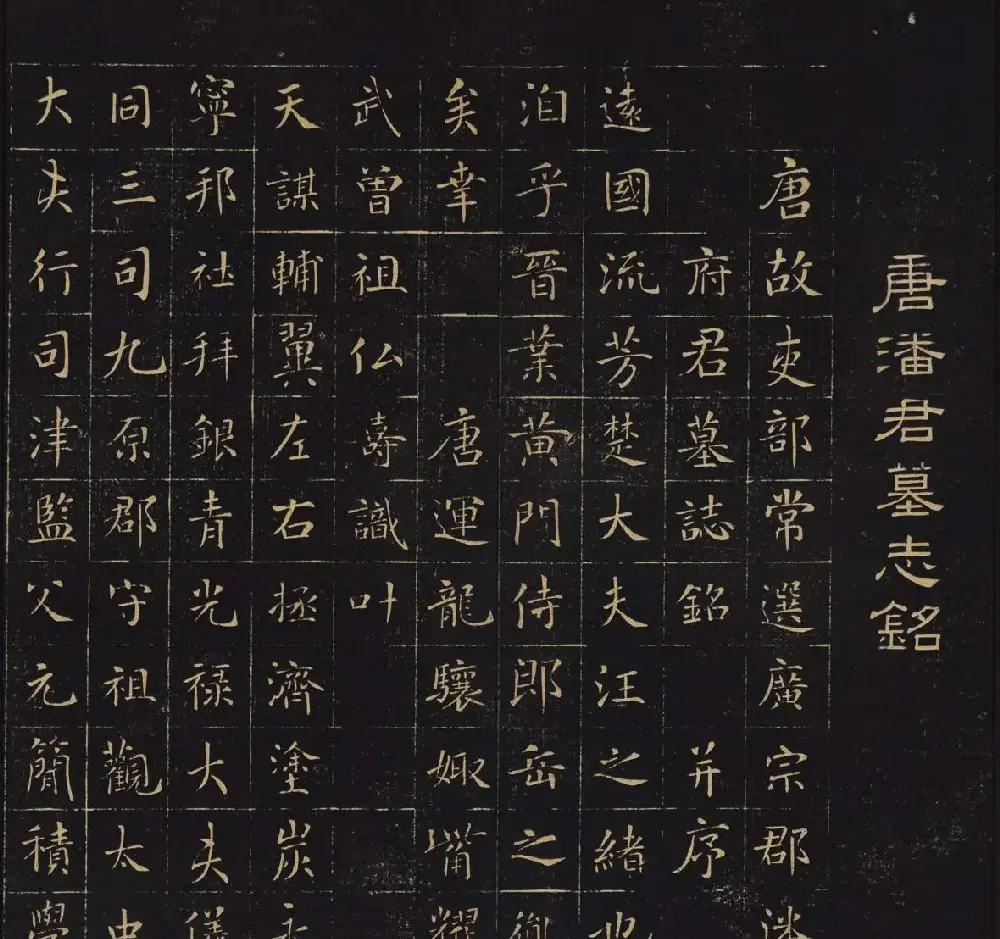 唐潘君墓志銘
唐故吏部常選廣宗郡潘
府君墓誌銘并序
遠國流芳楚大夫汪之緒也
洎乎晉葉黃門侍郎岳之
矣幸唐運龍驤娵觜耀
武曾祖仏壽識叶
天謀輔翼左右拯濟塗炭
寧邦社拜銀青光祿大夫儀
同三司九原郡守祖觀太中
大夫行司津監父元簡積學